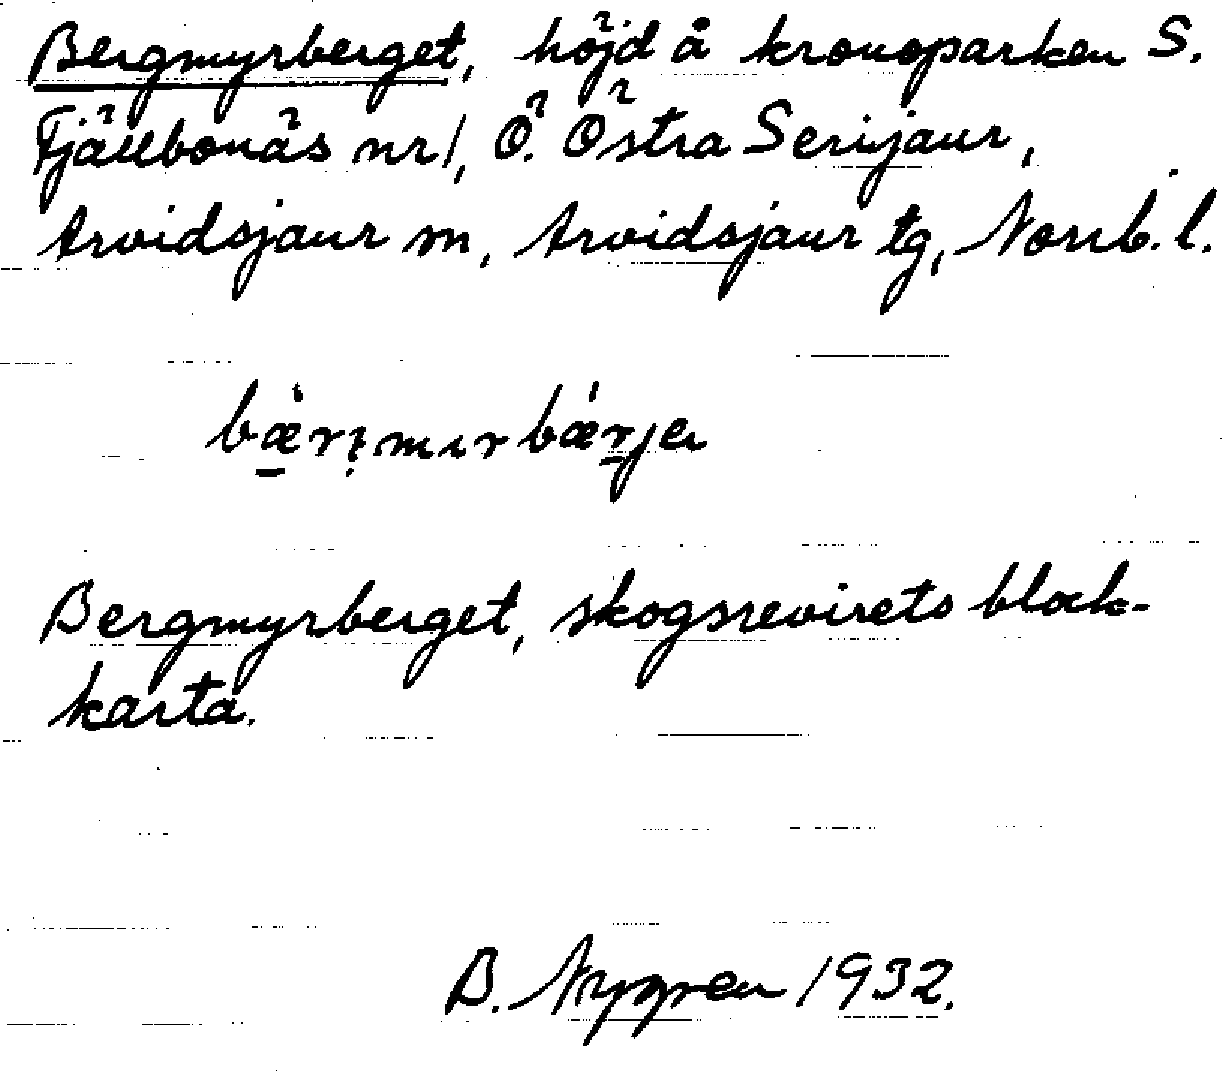 Bergmyrberget, höjd å kronoparken S.
Fjällbonäs nr 1, Ö. Östra Serijaur,
Arvidsjaur sn, Arvidsjaur tg, Norrb. l.
Bergmyrberget, skogsrevirets block-
karta.
B. Nygren 1932.